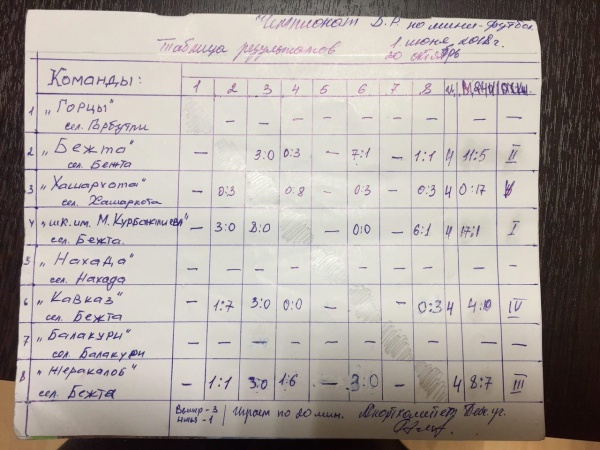 "Чемпионат Б.Р. по мини-футбол
Таблица результатов 1 июня 2018г.
20 октябрь
Команды: 1 2 3 4 5 6 7 8 И Мячи Очки
1 „Горцы" — — — — — — — —
сел. Гарбутли
2 „Бежта" — 3:0 0:3 — 7:1 — 1:1 4 11:5 II
сел. Бежта
3 „Хашархота" — 0:3 0:8 — 0:3 — 0:3 4 0:17 V
сел. Хашархота
4 „шк. им. М. Курбаналиева" — 3:0 8:0 — 0:0 — 6:1 4 17:1 I
сел. Бежта.
5 „Нахада" — — — — — — —
сел. Нахада
6 „Кавказ" — 1:7 3:0 0:0 — — 0:3 4 4:10 IV
сел. Бежта
7 „Балакури" — — — — — — —
сел. Балакури
8 „Жеракалоб" — 1:1 3:0 1:6 — 3:0 — 4 8:7 III
сел. Бежта
Выигр-3 Играем по 20 мин. Спорткомитет
Ничья-1